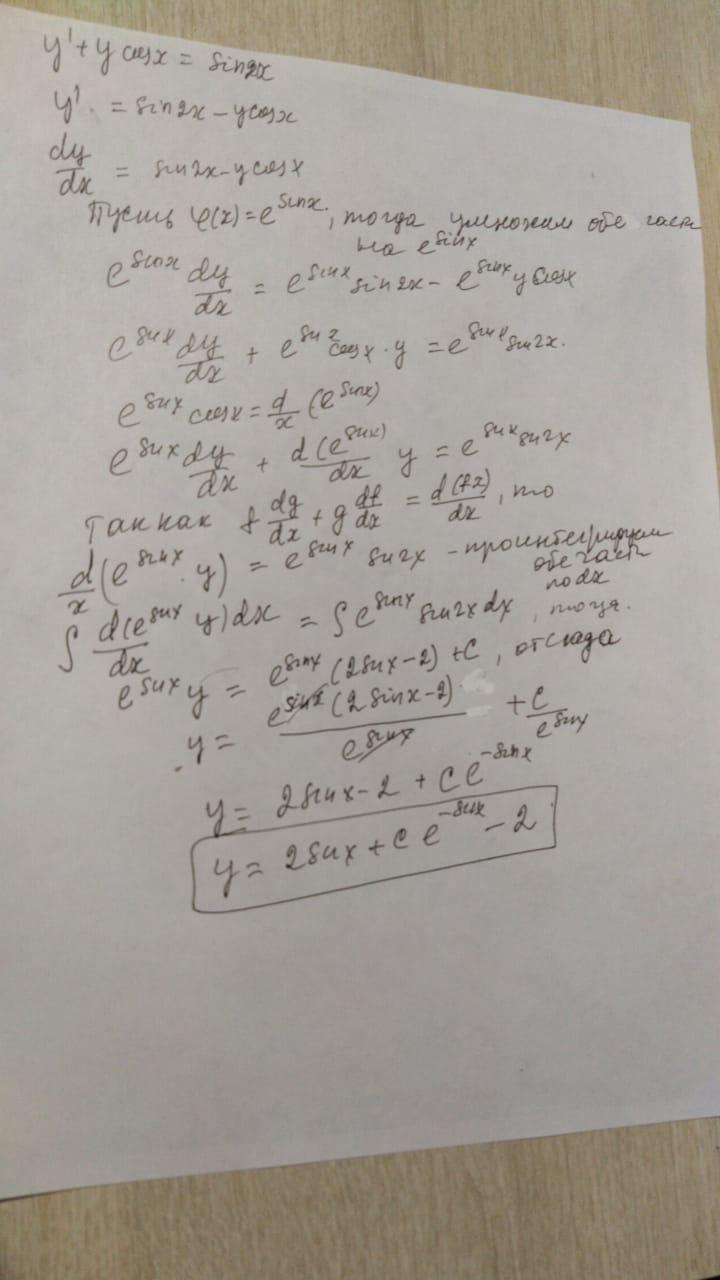 y' + y cosx = sin2x
y' = sin2x - ycosx
dy/dx = sin2x - ycosx
Пусть φ(x) = e^sinx, тогда умножим обе части
на e^sinx
e^sinx dy/dx = e^sinx sin2x - e^sinx y cosx
e^sinx dy/dx + e^sinx cosx · y = e^sinx sin2x.
e^sinx cosx = d/x (e^sinx)
e^sinx dy/dx + d(e^sinx)/dx y = e^sinx sin2x
Так как f dg/dx + g df/dx = d(fg)/dx, то
d/x (e^sinx · y) = e^sinx sin2x - проинтегрируем
обе части
по dx
∫ d(e^sinx y)/dx dx = ∫ e^sinx sin2x dx, тогда.
e^sinx y = e^sinx (2sinx - 2) + C, отсюда
y = e^sinx (2sinx - 2)/e^sinx + C/e^sinx
y = 2sinx - 2 + Ce^-sinx
y = 2sinx + Ce^-sinx - 2